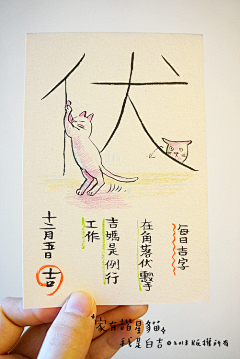 伏
每日吉字
在角落伏擊
吉媽是例行
工作
十二月五日
吉
家有諧星貓
我是白吉
©2013版權所有